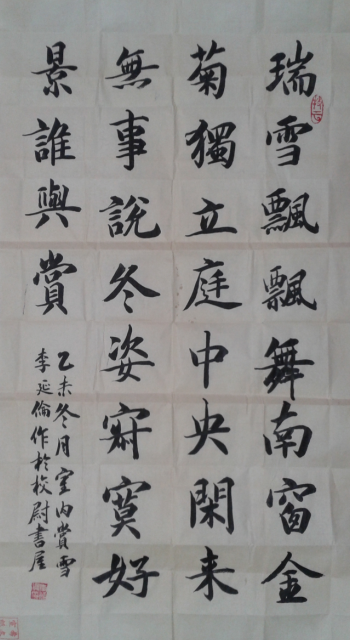 瑞雪飄飄舞南窗金
菊獨立庭中央閑来
無事說冬姿寂寞好
景誰與賞
乙未冬月室内賞雪
李延倫作於校尉書屋